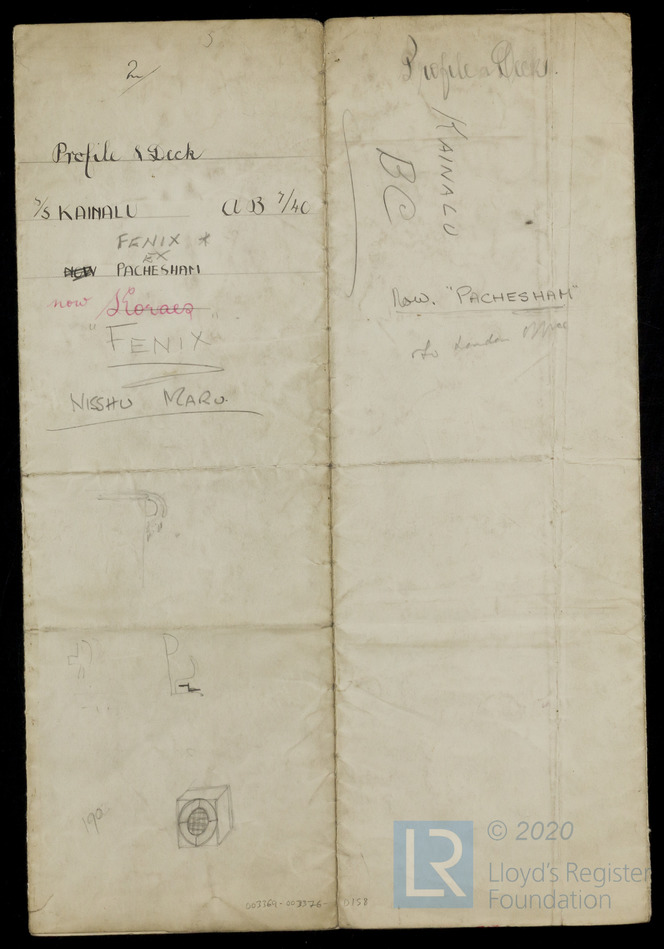 2
Profile & Deck
S/S KAINALU
FENIX
EX
NOW PACHESHAM
now Koraes
"FENIX"
NISSHU MARU.
190
Profile & Deck.
KAINALU
BC
Now. "PACHESHAM"
To London Office
003369-003376-0158
LR
© 2020
Lloyd's Register
Foundation